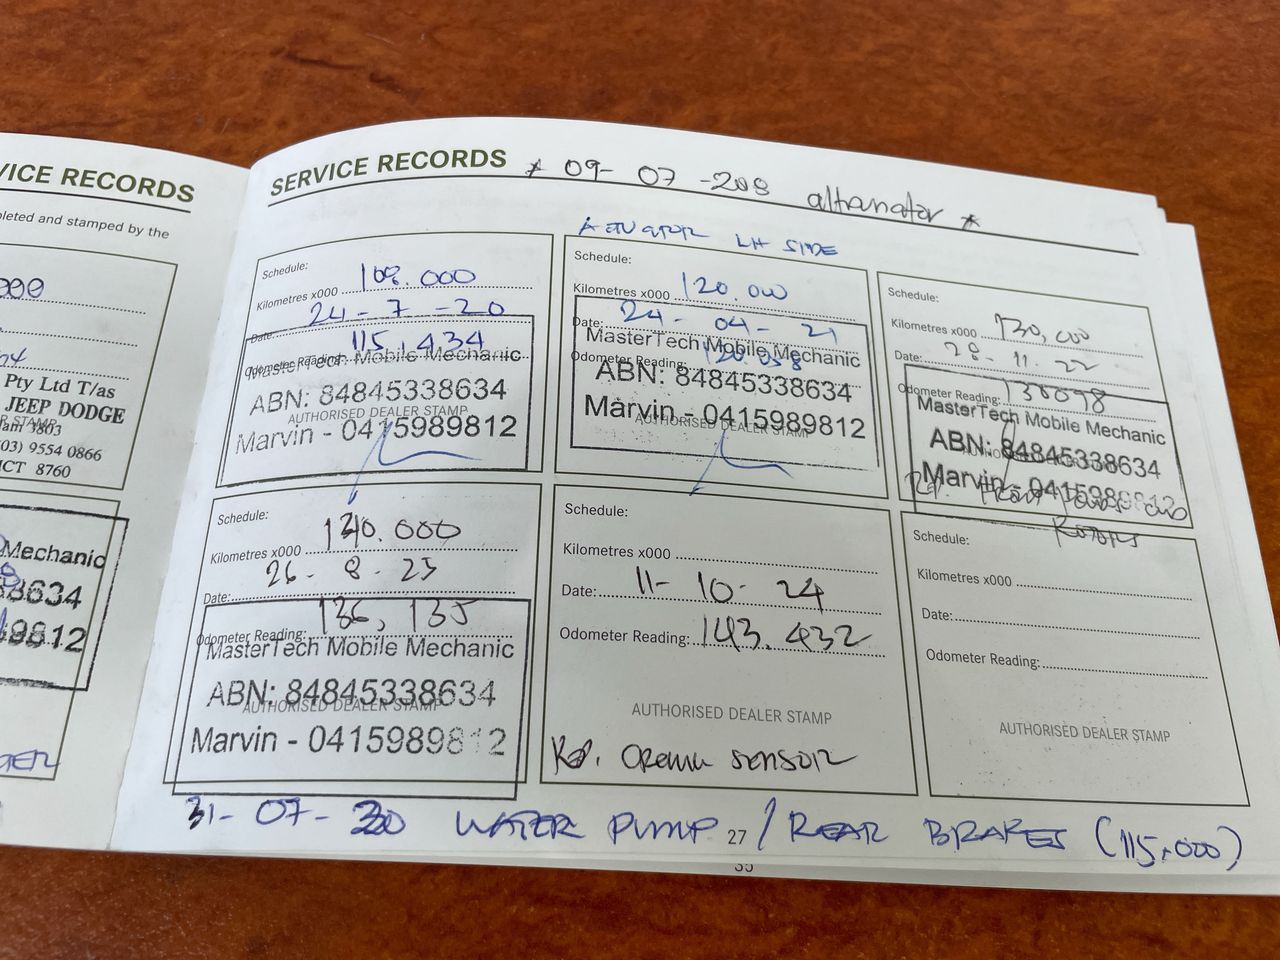 VICE RECORDS
pleted and stamped by the
000
Pty Ltd T/as
JEEP DODGE
3803
(03) 9554 0866
8760
Mechanic
SERVICE RECORDS * 09-07-208 altranator *
LH SIDE
Schedule:
Kilometres x000 108.000
Date: 24-7-20
Odometer Reading: 115,434
MasterTech Mobile Mechanic
ABN: 84845338634
AUTHORISED DEALER STAMP
Marvin - 0415989812
Schedule:
Kilometres x000 120.000
Date: 24-04-21
Odometer Reading:
MasterTech Mobile Mechanic
ABN: 84845338634
AUTHORISED DEALER STAMP
Marvin - 0415989812
Schedule:
Kilometres x000 130,000
Date: 28-11-22
Odometer Reading: 130098
MasterTech Mobile Mechanic
ABN: 84845338634
Marvin - 0415989812
Rotors
Schedule:
Kilometres x000 140.000
Date: 26-8-23
Odometer Reading: 136,135
MasterTech Mobile Mechanic
ABN: 84845338634
AUTHORISED DEALER STAMP
Marvin - 0415989812
Schedule:
Kilometres x000
Date: 11-10-24
Odometer Reading: 143.432
AUTHORISED DEALER STAMP
Rep. Crank sensor
Schedule:
Kilometres x000
Date:
Odometer Reading:
AUTHORISED DEALER STAMP
31-07-20 WATER PUMP / REAR BRAKES (115,000)
27